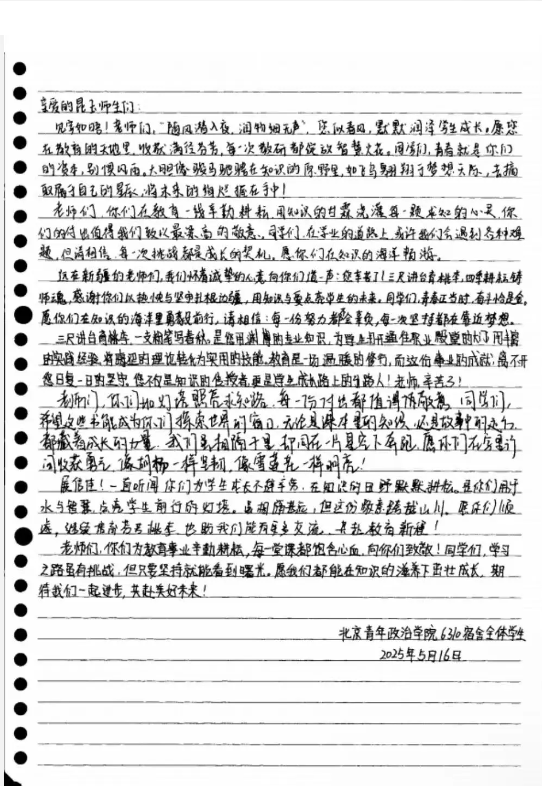 亲爱的昆玉师生们：
见字如晤！老师们，“随风潜入夜，润物细无声”，您似春风，默默润泽学生成长。愿您
在教育的天地里，收获满径芬芳，每一次教研都绽放智慧火花。同学们，青春就是你们
的资本，别惧风雨，大胆像骏马驰骋在知识的原野里，如飞鸟翱翔于梦想天际，去摘
取属于自己的星辰，将未来的绚烂握在手中！
老师们，你们在教育一线辛勤耕耘，用知识的甘霖浇灌每一颗求知的心灵，你
们的付出值得我们致以最崇高的敬意。同学们，在学业的道路上，或许我们会遇到各种难
题，但请相信，每一次挑战都是成长的契机，愿你们在知识的海洋畅游。
远在新疆的老师们，我们怀着诚挚的心意向你们道一声：您辛苦了！三尺讲台育桃李，四季耕耘铸
师魂，感谢你们以热忱与坚守扎根边疆，用知识与爱点亮学生的未来。同学们，青春正当时，奋斗恰是
愿你们在知识的海洋里勇毅前行，请相信：每一份努力都会，每一次坚持都在靠近梦想。
三尺讲台，一支粉笔写春秋，是您用渊博的专业知识，为学生打开通往职业殿堂的大门，用丰富
的实践经验，将理论转化为实用的技能，教育是一场温暖的修行，而这份事业的成就，离不开
您日复一日的坚守，您不仅是知识的传授者，更是学生成长路上的引路人！老师，辛苦了！
老师们，你们如灯塔照亮求知路，每一份付出都值得被敬意。同学们，
希望这些书能成为你们探索世界的窗口，无论是课本里的知识，还是故事中的
都藏着成长的力量。我们虽相隔千里，却同在一片星空下奔跑，愿你们在
间收获勇气，像胡杨一样坚韧，像雪莲花一样明亮！
展信佳！一直听闻你们为学生成长不辞辛劳，在知识的田野默默耕耘。是你们用汗
水与智慧，点亮学生前行的灯塔。虽相隔甚远，但这份敬意跨越山川。愿你们顺
遂，继续培育芬芳桃李，也盼我们能有更多交流，共赴教育新程！
老师们，你们为教育事业辛勤耕耘，每一堂课都饱含心血，向你们致敬！同学们，学习
之路虽有挑战，但只要坚持就能看到曙光。愿我们都能在知识的滋养下茁壮成长，期
待我们一起进步，共赴美好未来！
北京青年政治学院6310宿舍全体学生
2025年5月16日